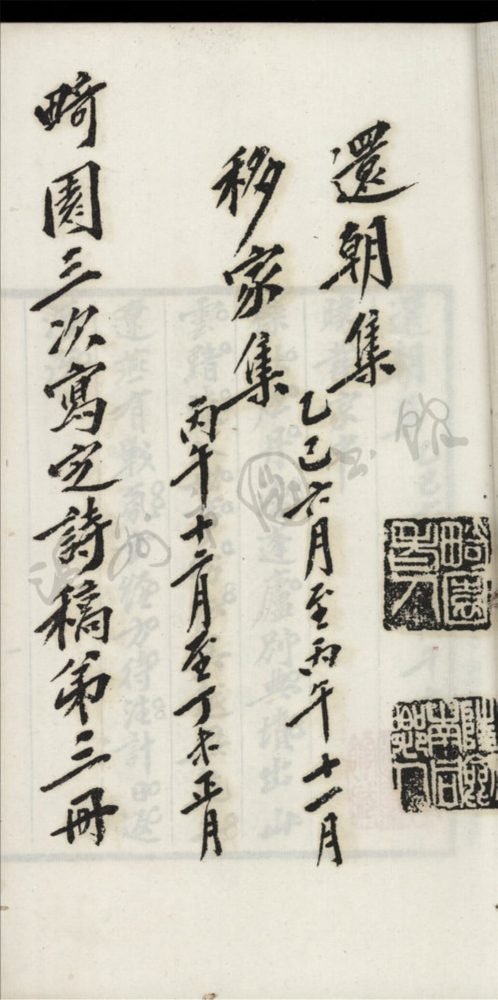 還朝集
乙巳六月至丙午十一月
移家集
丙午十二月至丁未正月
畸園三次寫定詩稿第三冊
畸園老人